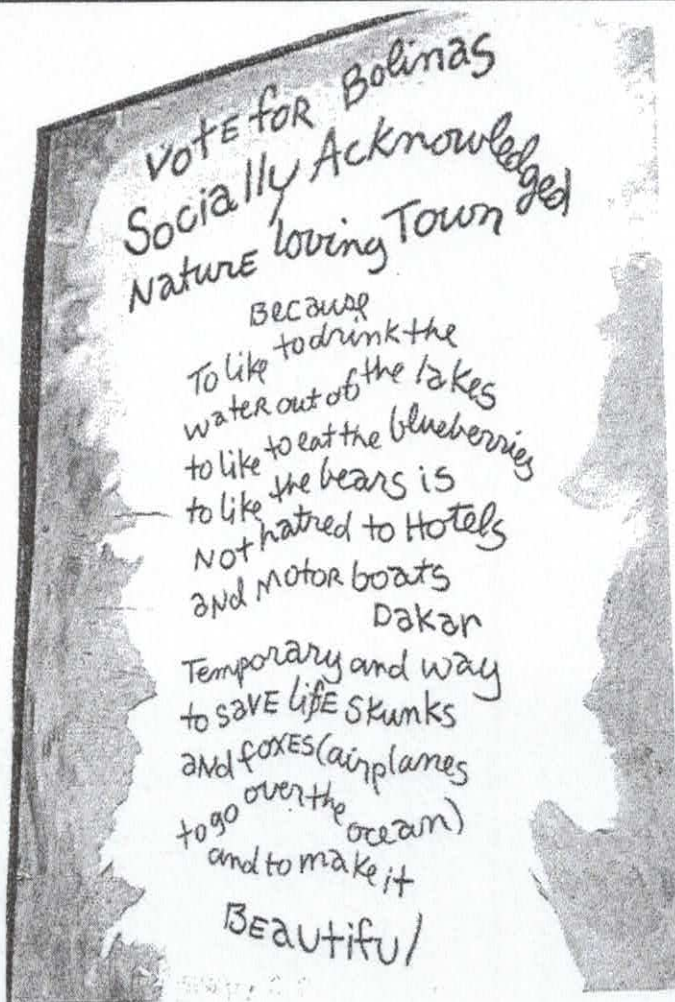 Vote for Bolinas
Socially Acknowledged
Nature loving Town
Because
To like to drink the
water out of the lakes
to like to eat the blueberries
to like the bears is
Not hatred to Hotels
and motor boats
Dakar
Temporary and way
to save life skunks
and foxes (airplanes
to go over the ocean)
and to make it
Beautiful